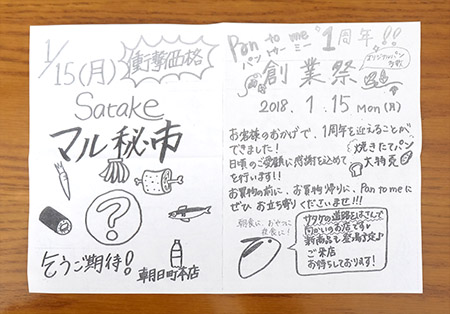 1/15(月)
衝撃価格
Satake
マル秘市
?
乞うご期待!
朝日町本店
Pan to me 1周年!!
パン トゥー ミー
オリジナルパン
創業祭
2018. 1. 15 Mon(月)
お客様のおかげで、1周年を迎えることが
できました!
日頃のご愛顧に感謝を込めて
を行います!!
焼きたてパン
大特売
お買物の前に、お買物帰りに、Pan to meに
ぜひ お立ち寄りくださいませ!!!
朝食に、おやつに
夜食に!
サタケの道路をはさんで
向かいのお店です♪
新商品も登場予定♪
ご来店
お待ちしております!